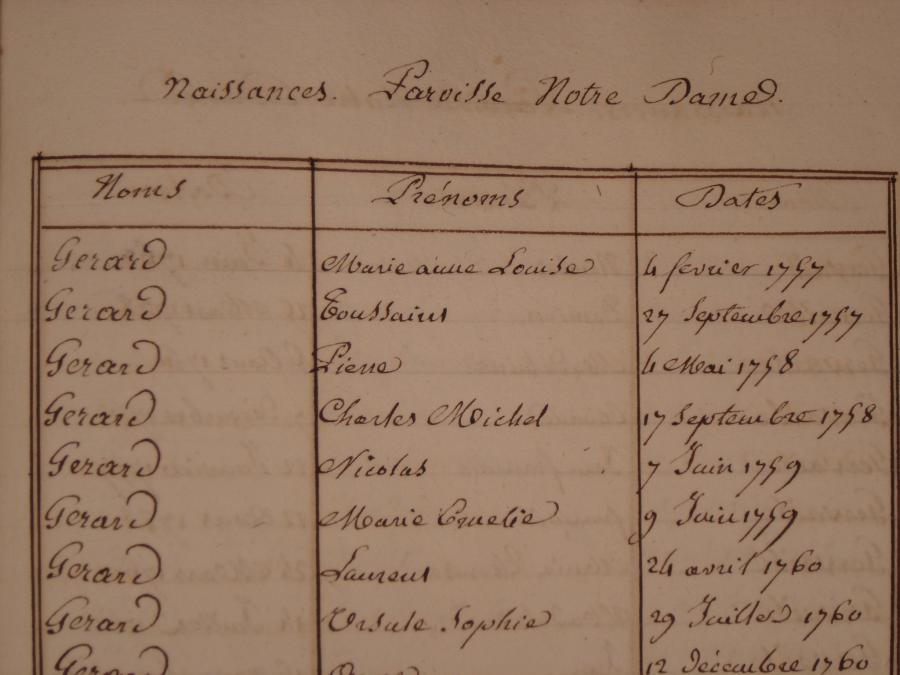 Naissances. Paroisse Notre Dame.
Noms Prénoms Dates
Gerard Marie anne Louise 4 fevrier 1757
Gerard Toussains 27 Septembre 1757
Gerard Pierre 4 Mai 1758
Gerard Charles Michel 17 Septembre 1758
Gerard Nicolas 7 Juin 1759
Gerard Marie 9 Juin 1759
Gerard Laurens 24 avril 1760
Gerard Ursule Sophie 29 Juillet 1760
Gerard 12 décembre 1760